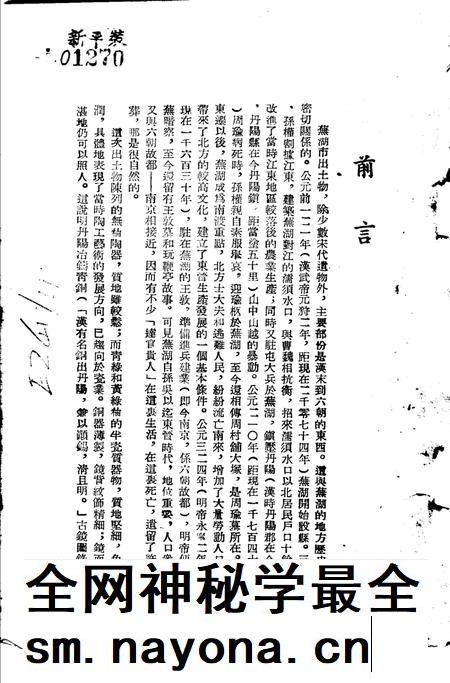 新平装
01270
前言
蕪湖市出土物，除少數宋代遺物外，主要部份是漢末到六朝的東西。這與蕪湖的地方歷史
密切關係的。公元前一二一年（漢武帝元狩二年，距現在二千零七十四年）蕪湖開始設縣。三
、孫權割據江東，建築蕪湖對江的濡須水口，與曹魏相抗衡，招來濡須水口以北居民戶口十餘
改進了當時江東地區較落後的農業生產；同時又駐屯大兵於蕪湖，鎮壓丹陽（漢時丹陽郡在今
、丹陽縣在今丹陽鎮，距當塗五十里）山中山越的暴動。公元二一〇年（距現在一千七百四十
）周瑜病死時，孫權親自素服舉哀，迎瑜柩於蕪湖，至今還相傳周村舖大塚，是周瑜墓所在。
東遷以後，蕪湖成爲南渡重點，北方士大夫和逃難人民，紛紛流亡南來，增加了大量勞動人口
帶來了北方的較高文化，建立了東晉生產發展的一個基本條件。公元三二四年（明帝永二年
現在一千六百三十年），駐在蕪湖的王敦，準備進兵建業（即今南京，係六朝故都），明帝便
蕪暗察，至今還留有王敦墓和玩鞭亭故事。可見蕪湖自孫吳以迄東晉時代，地位重要，人口衆
又與六朝故都——南京相接近，因而有不少「達官貴人」在這裏生活，在這裏死亡，遺留了許
葬，那是很自然的。
這次出土物陳列的無釉陶器，質地雖較鬆；而靑綠和黃綠釉的半瓷質器物，質地堅細，色
潤，具體地表現了當時陶工藝術的發展方向，已趨向於瓷業。銅器薄製，鏡背紋飾精細；鏡面
湛地仍可以照人。這說明丹陽冶鑄青銅（「漢有名銅出丹陽，雜以銀錫，清且明。」古鏡圖錄
全网神秘学最全
sm.nayona.cn